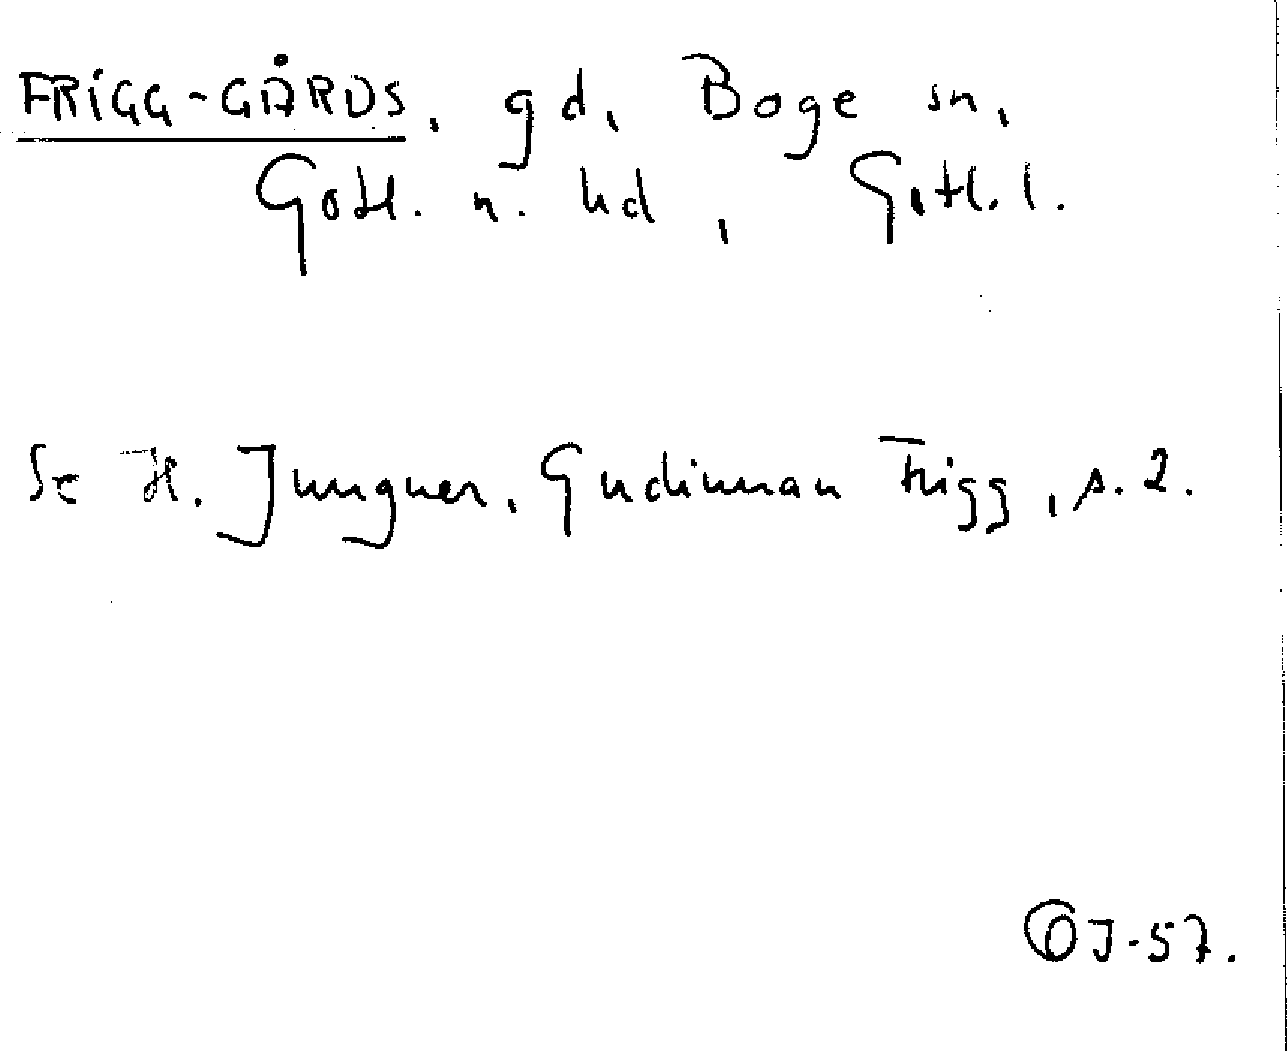 FRIGG-GÅRDS, gd, Boge sn,
Gotl. n. hd, Gotl. l.
Se H. Jungner, Gudinnan Frigg, s. 2.
OJ-57.